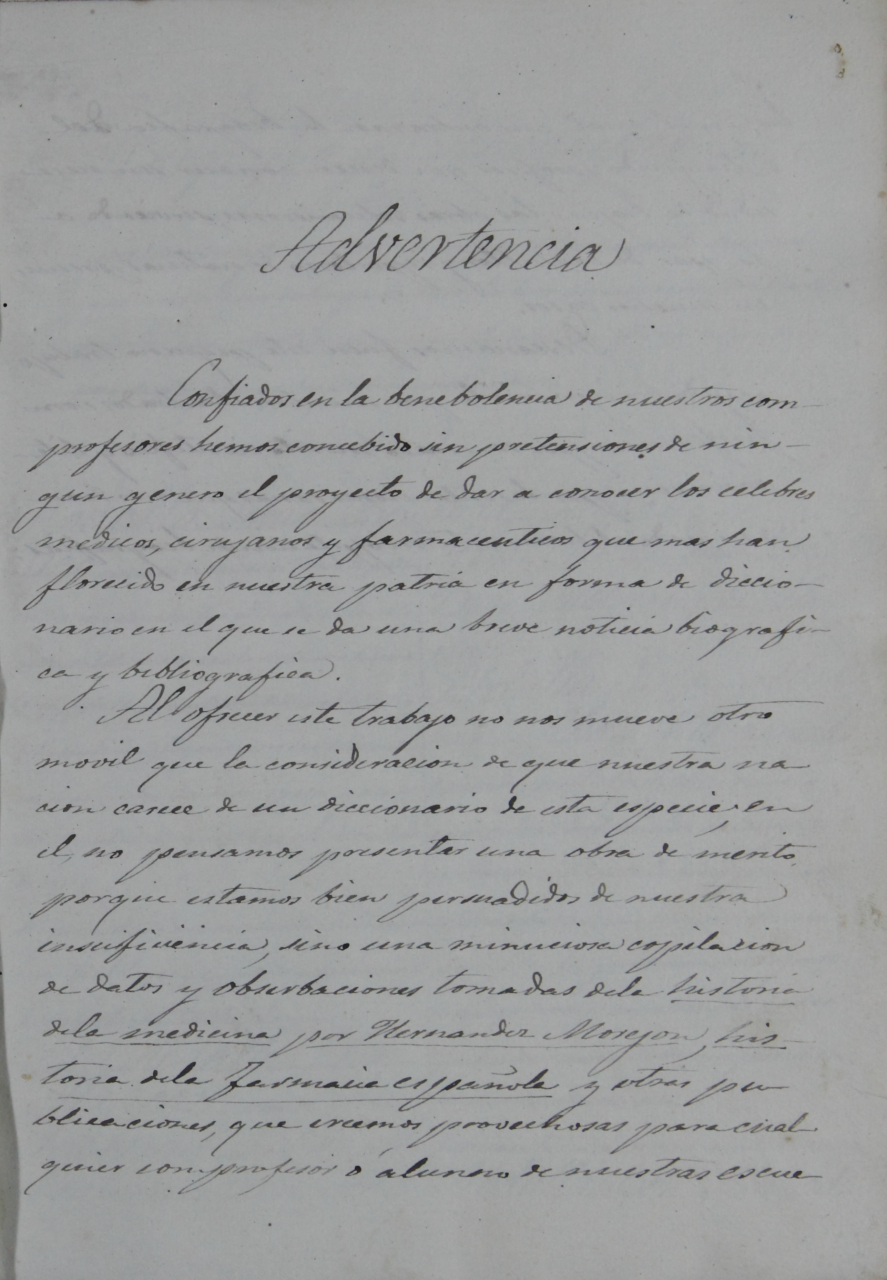 Advertencia
Confiados en la benebolencia de nuestros com-
profesores hemos concebido sin pretensiones de nin-
gun genero el proyecto de dar a conocer los celebres
medicos, cirujanos y farmaceuticos que mas han
florecido en nuestra patria en forma de diccio-
nario en el que se da una breve noticia biografi-
ca y bibliografica.
Al ofrecer este trabajo no nos mueve otro
movil que la consideracion de que nuestra na
cion carece de un diccionario de esta especie, en
el, no pensamos presentar una obra de merito,
porque estamos bien persuadidos de nuestra
insuficiencia, sino una minuciosa copilacion
de datos y obserbaciones tomadas dela historia
dela medicina por Hernandez Morejon, his-
toria dela farmacia española y otras pu-
blicaciones, que creemos provechosas para cual
quier comprofesor ó alunno de nuestras escue